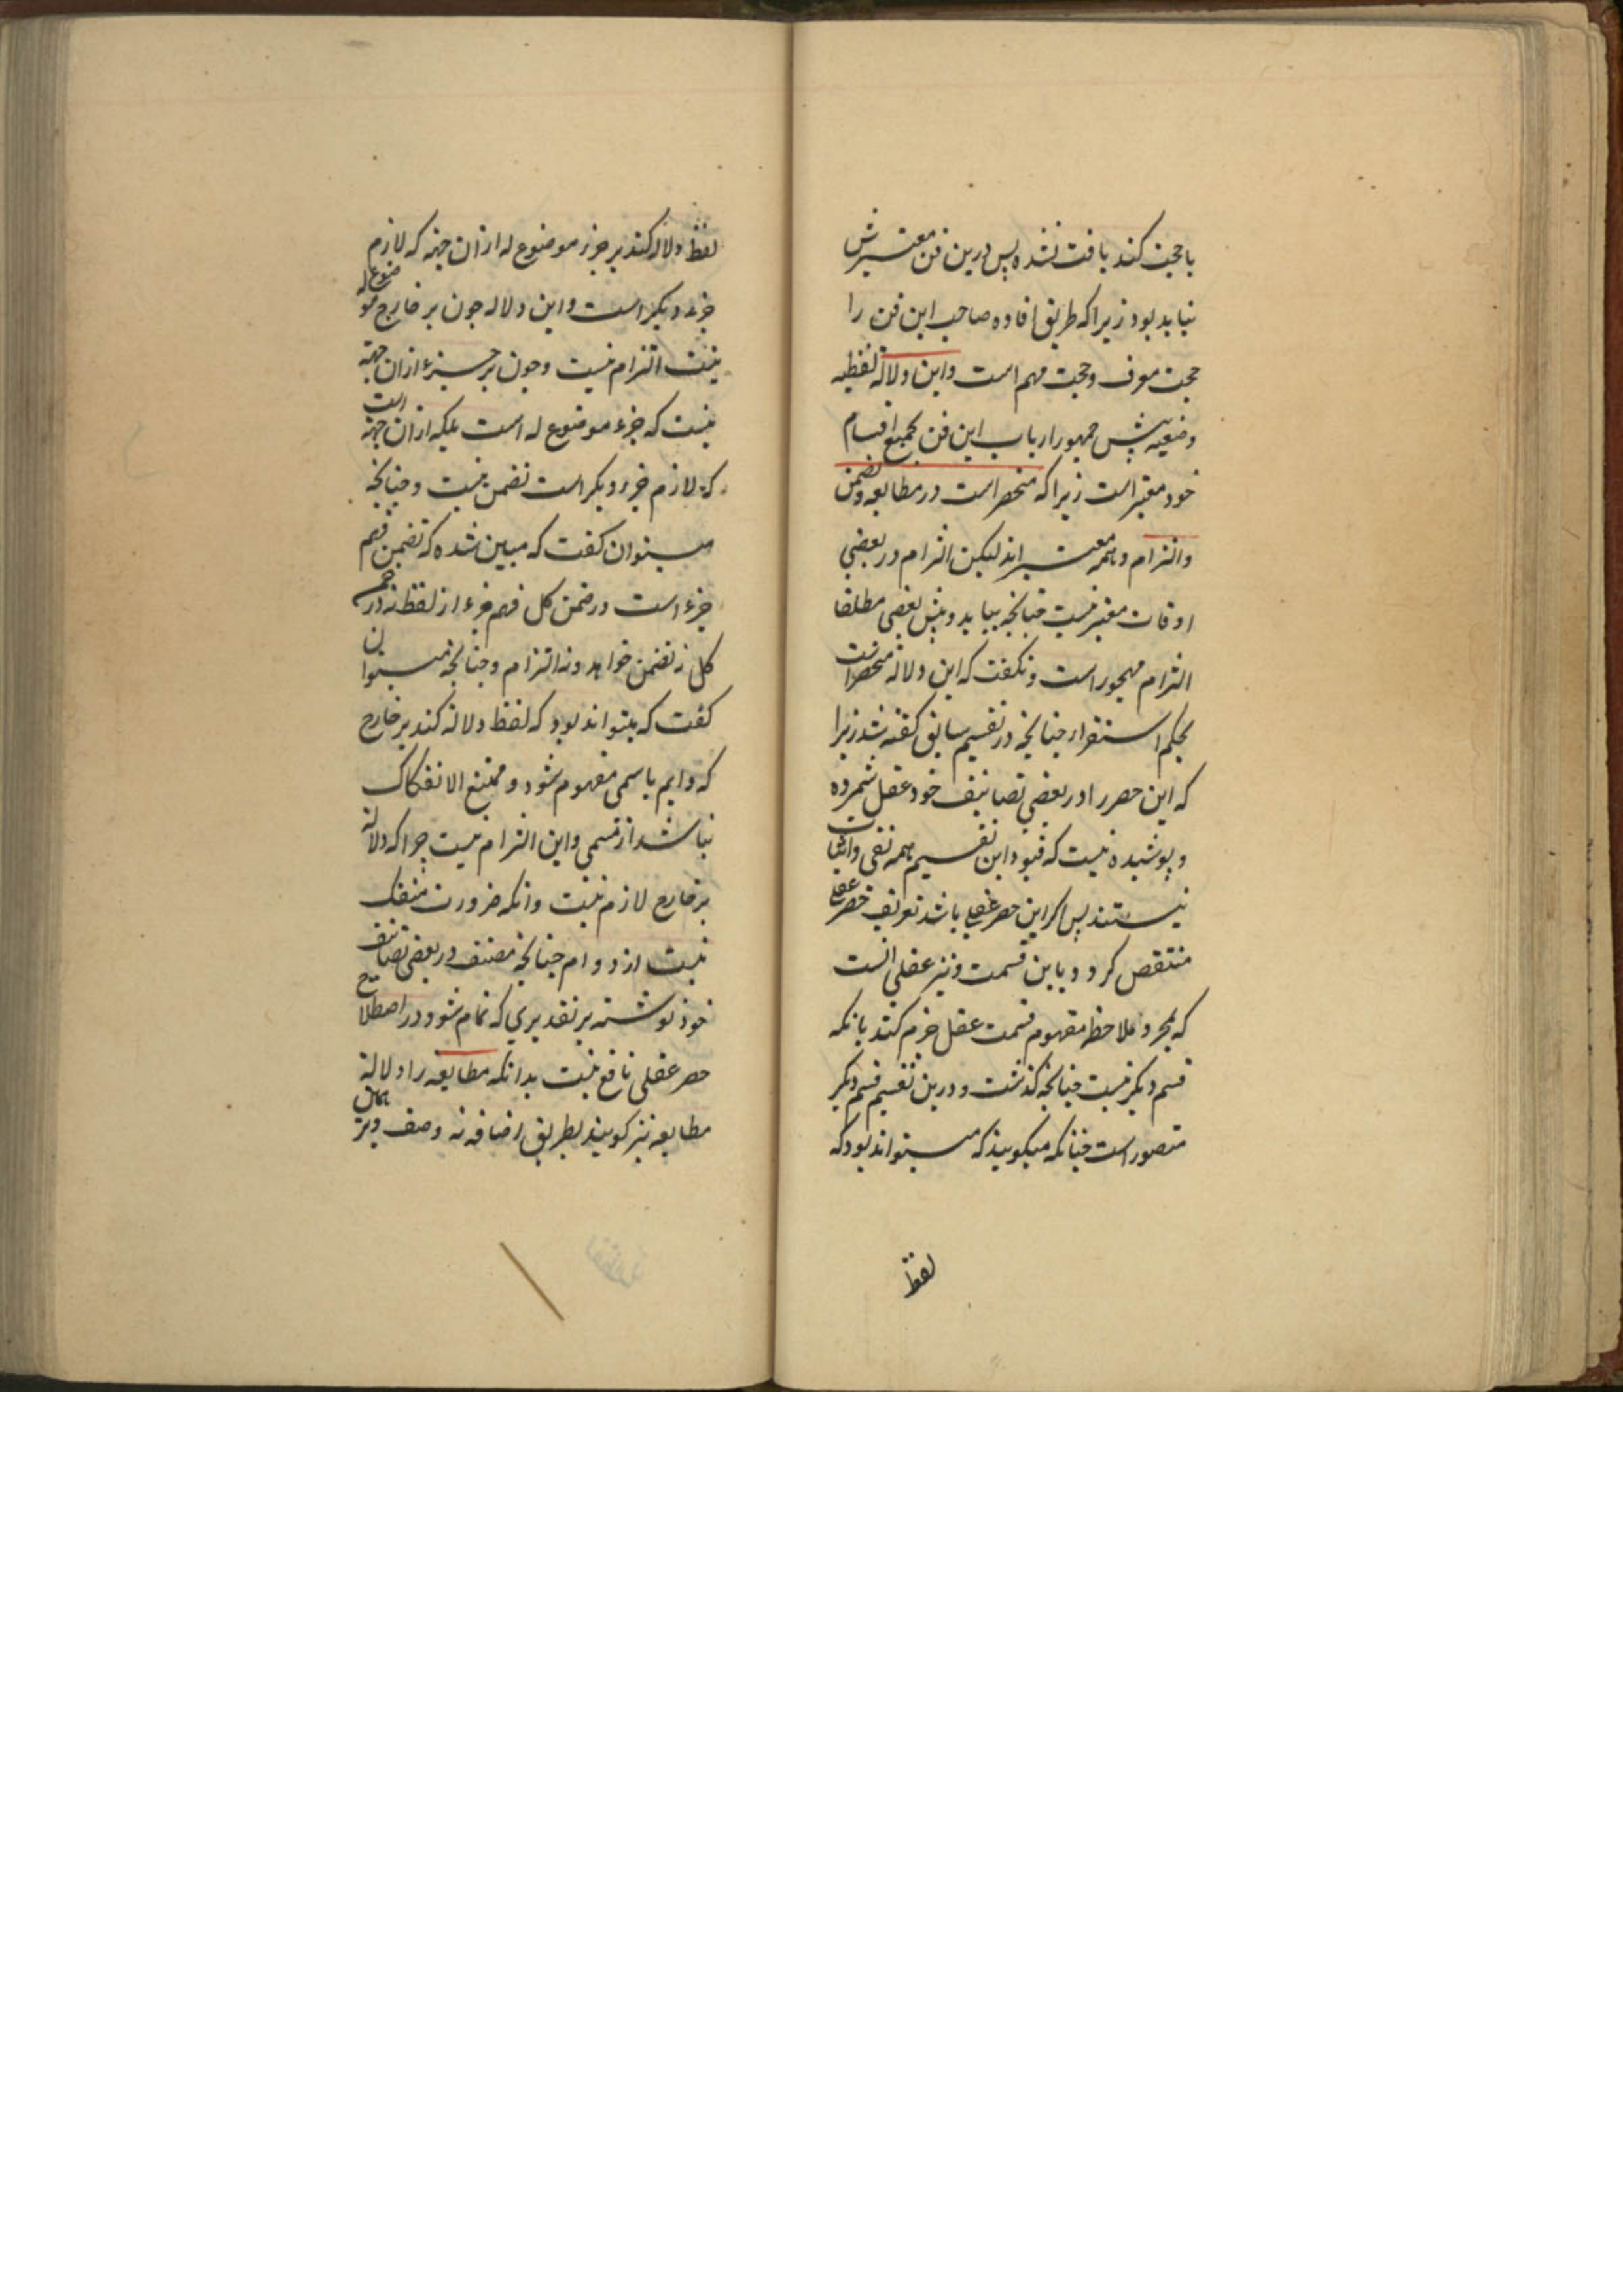 با حجت کند یافت نشده پس درین فن معتبرش
نباید بود زیرا که طریق افاده صاحب این فن را
حجت معرف و حجت مهم است و این دلالة لفظیه
وضعیه پیش جمهور ارباب این فن بجمیع اقسام
خود معتبر است زیرا که منحصر است در مطابعه و تضمن
و التزام و همه معتبر اند لیکن التزام در بعضی
اوقات معتبر نیست چنانچه بیاید و پیش بعضی مطلقا
التزام مهجور است و نکفت که این دلالة منحصر است
بحکم استقرار چنانچه در تقسیم سابق کفته شد زیرا
که این حصر را در بعضی تصانیف خود عقل شمرده
و پوشیده نیست که قیود این تقسیم همه نفی و اثبات
نیستند پس اکر این حصر عقلی باشد تعریف حصر عقلی
منتقض کردد باین قسمت و نیز عقلی انست
که بمجرد ملاحظه مفهوم قسمت عقل جزم کند بانکه
قسم دیکر نیست چنانچه کذشت و درین تقسیم قسم دیکر
متصور است چنانکه میکویند که میتواند بود که
لفظ
لفظ دلاله کند بر جزء موضوع له از ان جهة که لازم
جزء دیکر است و این دلاله چون بر خارج موضوع له
نیست التزام نیست و چون بر جزء از ان جهة
نیست که جزء موضوع له است بلکه از ان جهة است
که لازم جزء دیکر است تضمن نیست و چنانچه
میتوان کفت که مبین شده که تضمن فهم
جزء است در ضمن کل فهم جزء از لفظ نه در ضمن
کل نه تضمن خواهد و نه التزام و چنانچه میتوان
کفت که میتواند بود که لفظ دلالة کند بر خارج
که دایم باسمی مفهوم شود و ممتنع الانفکاک
نباشد از مسمی و این التزام نیست چرا که دلالة
بر خارج لازم نیست و انکه ضرورت منفک
نیست از دوام چنانچه مصنف در بعضی تصانیف
خود نوشته بر تقدیری که تمام شود در اصطلاح
حصر عقلی نافع نیست بدانکه مطابعه را دلالة
مطابعه نیز کویند بطریق اضافه نه وصف و نیز